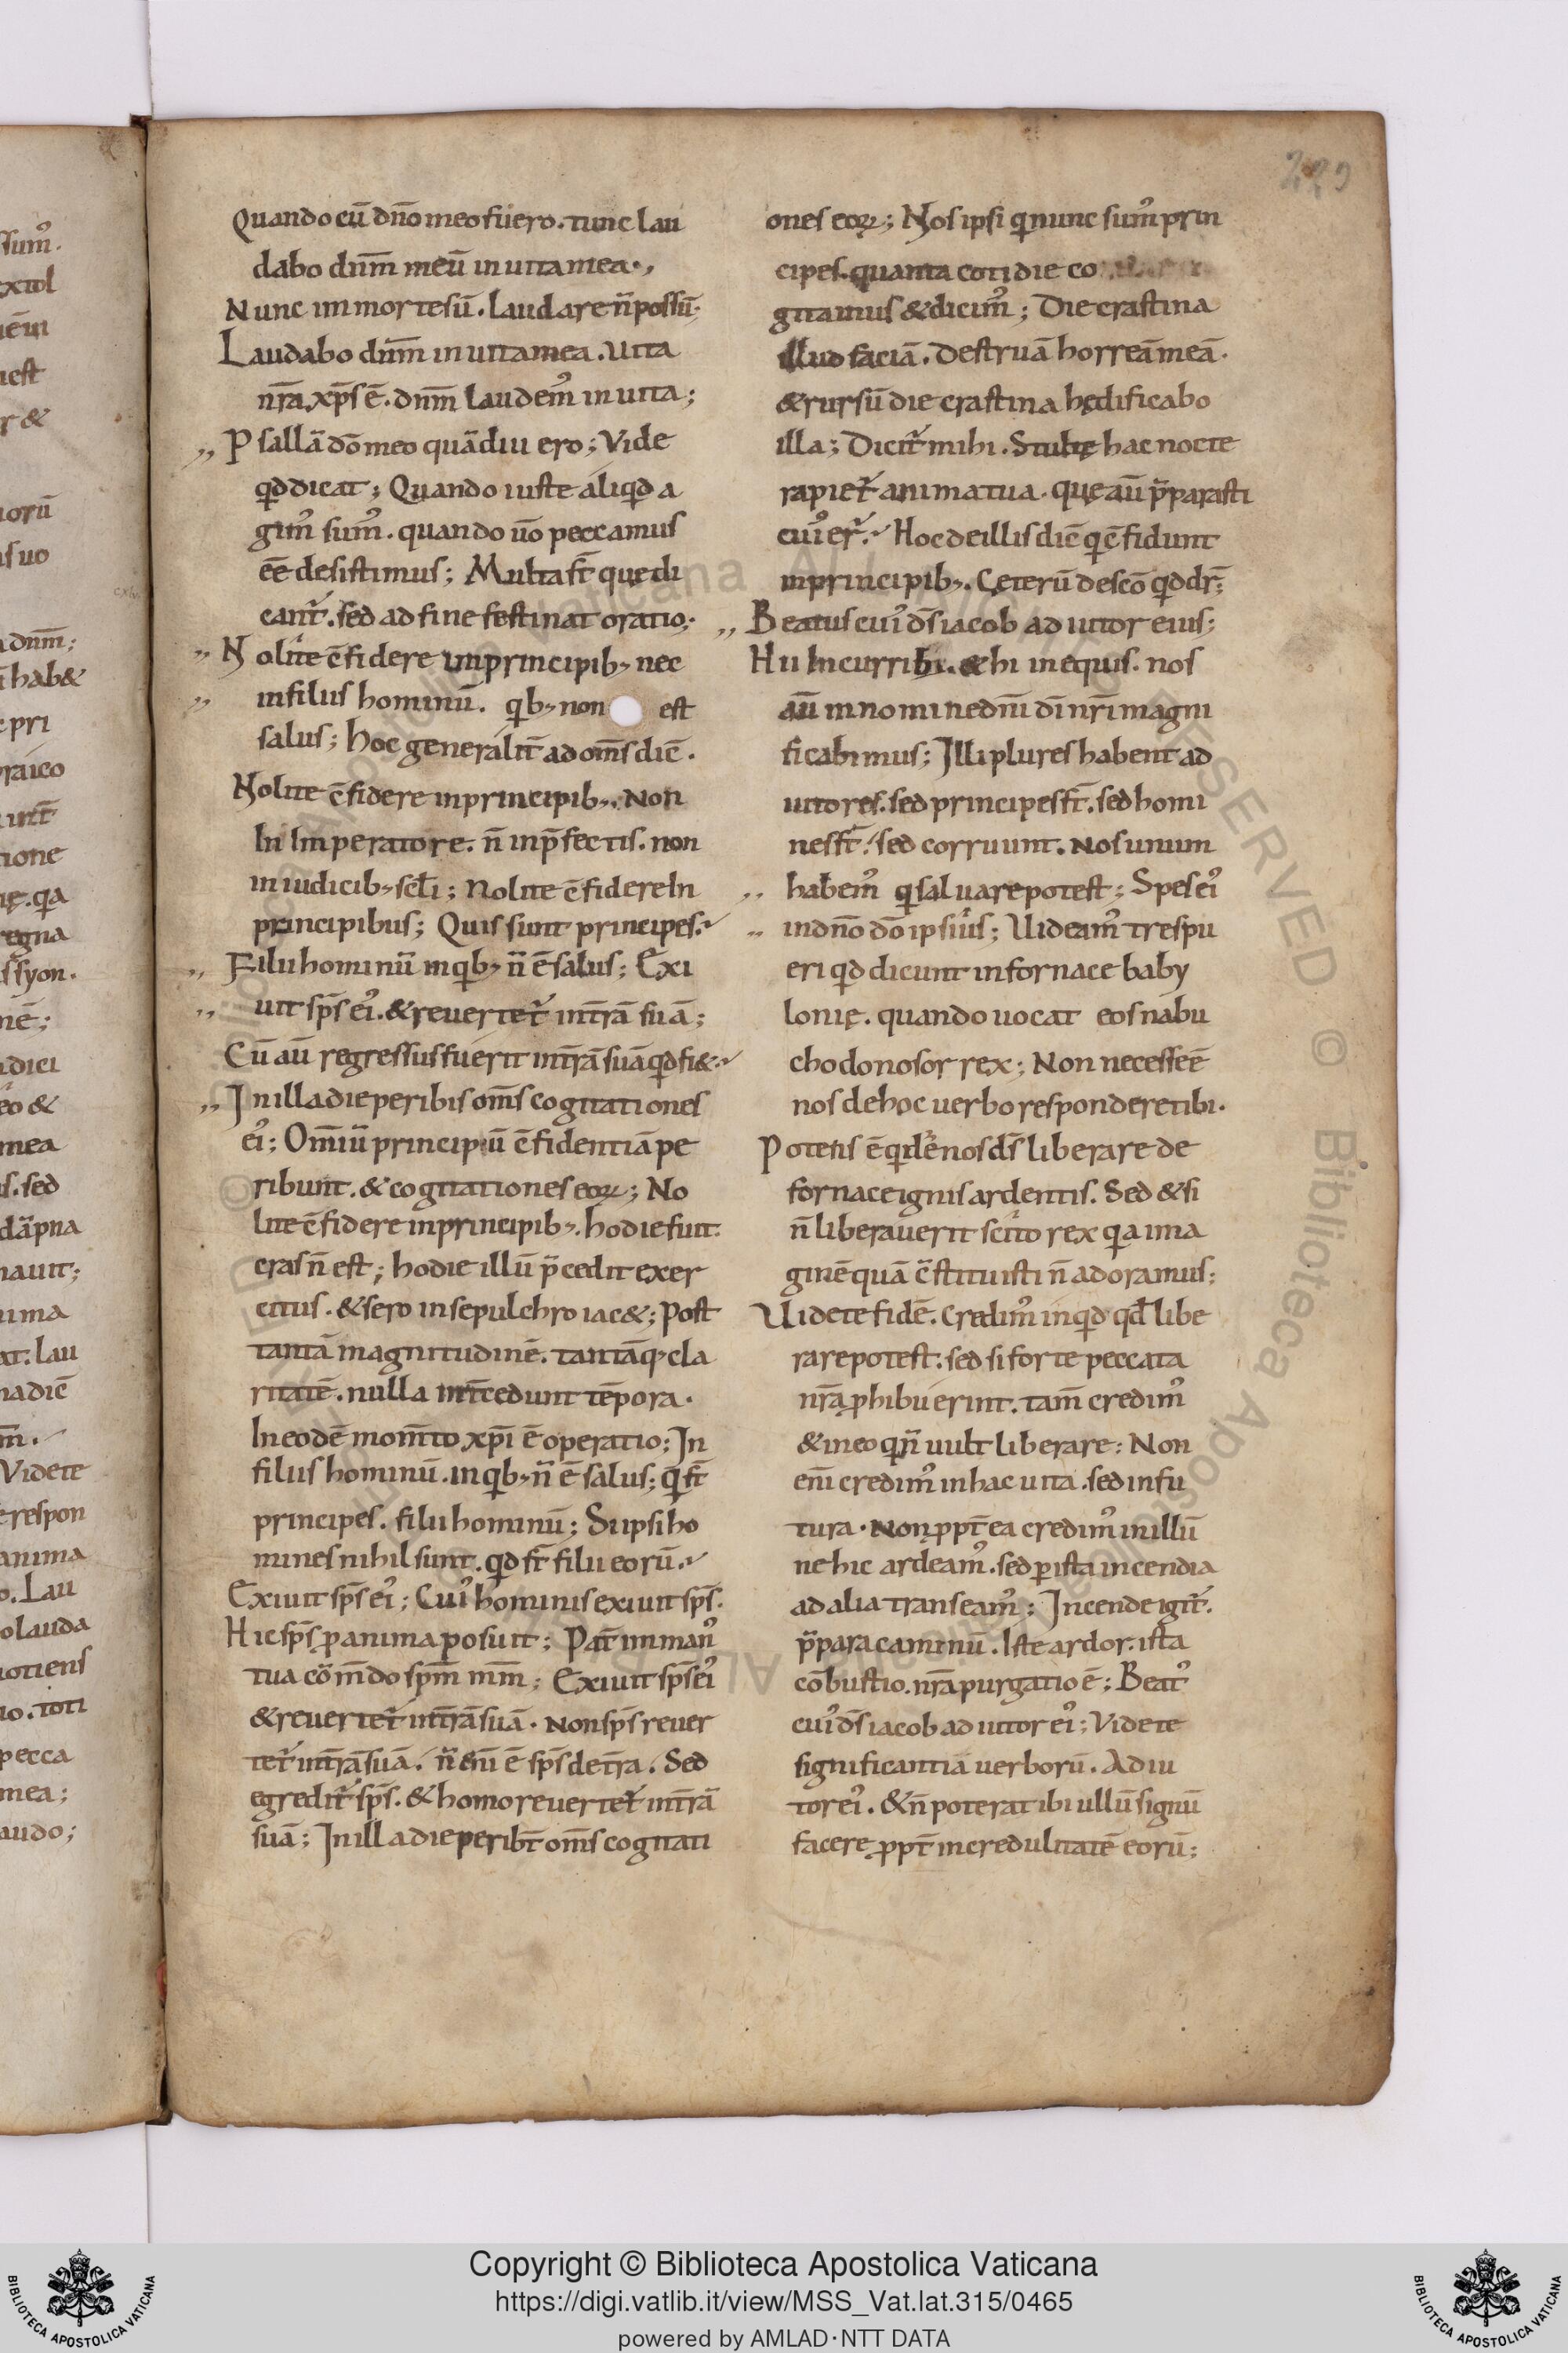 229
Quando cū dn̄o meo fuero. tunc lau
dabo dnm̄ meū in uita mea·,
Nunc in mortesū. laudare n̄ possū;
Laudabo dnm̄ in uita mea. uita
nr̄a xp̄s ē. dnm̄ laudem᾽ in uita;
,, Psallā dō meo quādiu ero; Vide
qd dicat; Quando iuste aliqd a
gim᾽ sum᾽. quando uō peccamus
eē desistimus; Multa st̄ quę di
cant᾽. sed ad fine festinat oratio;
,, Nolite c̄fidere in principib; nec
,, in filiis hominū. qb; non est
salus; hoc generalit̄ ad om̄s diē.
Nolite c̄fidere in principib;. Non
In Imperatore. n̄ in p̄fectis. non
in iudicib; scl̄i; Nolite c̄fidere In
principibus; Quis sunt principes.
,, Filii hominū in qb; n̄ ē salus; Exi
,, uit sp̄s ei᾽. & reuertet᾽ in tr̄ā suā;
Cū aū regressus fuerit in tr̄ā suā qd fi&.
,, In illa die peribis om̄s cogitationes
ei᾽; Om̄iū principiū c̄fidentiā pe
ribunt. & cogitationes eoꝝ; No
lite c̄fidere in principib;. hodie fuit.
cras n̄ est; hodie illū p̄cedit exer
citus. & sero in sepulchro iac&; Post
tantā magnitudinē. tantāq; cla
ritatē. nulla int̄cedunt tēpora.
In eodē mom̄to xp̄i ē operatio; In
filiis hominū. in qb; n̄ ē salus; q st̄
principes. filii hominū; Si ipsi ho
mines nihil sunt. qd st̄ filii eorū.
Exiuit sp̄s ei᾽; Cui᾽ hominis exiuit sp̄s.
Hic sp̄s ꝓ anima posuit; Pat̄ in man᾽
tua cōm̄do spm̄ mm̄; Exiuit sp̄s ei᾽
& reuertet᾽ in tr̄ā suā. Non sp̄s reuer
tet᾽ in tr̄ā suā. n̄ eni ē sp̄s de tr̄a. Sed
egredit᾽ sp̄s. & homo reuertet᾽ in tr̄ā
suā; In illa die peribt̄ om̄s cogitati
ones eoꝝ; Nos ipsi q nunc sum᾽ prin
cipes. quanta cotidie co
gitamus & dicim᾽; Die crastina
illud faciā. Destruā horreā meā.
& rursū die crastina hędificabo
illa; Dicit᾽ mihi. Stultę hac nocte
rapiet᾽ anima tua. quę aū p̄parasti
cui᾽ er᾽. Hoc de illis diē q c̄fidunt
in principib;. Cęterū de scō qd dr̄;
,, Beatus cui᾽ ds̄ iacob adiutor eius;
Hii In curribi. & hi in equis. nos
aū in nomine dnī dī nrī magni
ficabimus; Illi plures habent ad
iutores. sed principes st̄. sed homi
nes st̄. sed corruunt. Nos unum
,, habem᾽ q saluare potest; Spes ei᾽
,, in dn̄o dō ipsius; Uideam᾽ tres pu
eri qd dicunt in fornace baby
lonię. quando uocat eos nabu
chodonosor rex; Non necesse ē
nos de hoc uerbo respondere tibi.
Potens ē qdē nos ds̄ liberare de
fornace ignis ardentis. Sed & si
n̄ liberauerit scito rex qa ima
ginē quā c̄stituisti n̄ adoramus;
Uidete fidē. Credim᾽ inqd qd libe
rare potest. sed si forte peccata
nr̄a ꝓhibuerint. tam̄ credim᾽
& in eo q n̄ uult liberare: Non
eni credim᾽ in hac uita. sed in fu
tura. Non ꝓpt̄ ea credim᾽ in illū
ne hic ardeam᾽. sed ꝑ ista incendia
ad alia transeam᾽; Incende igit᾽.
p̄para caminū. Iste ardor. ista
cōbustio. nr̄a purgatio ē; Beat᾽
cui᾽ ds̄ iacob adiutor ei᾽; Videte
significantiā uerborū. Adiu
tor ei᾽. & n̄ poterat ibi ullū signū
facere ꝓpt̄ incredulitatē eorū;
Copyright © Biblioteca Apostolica Vaticana
https://digi.vatlib.it/view/MSS_Vat.lat.315/0465
powered by AMLAD·NTT DATA